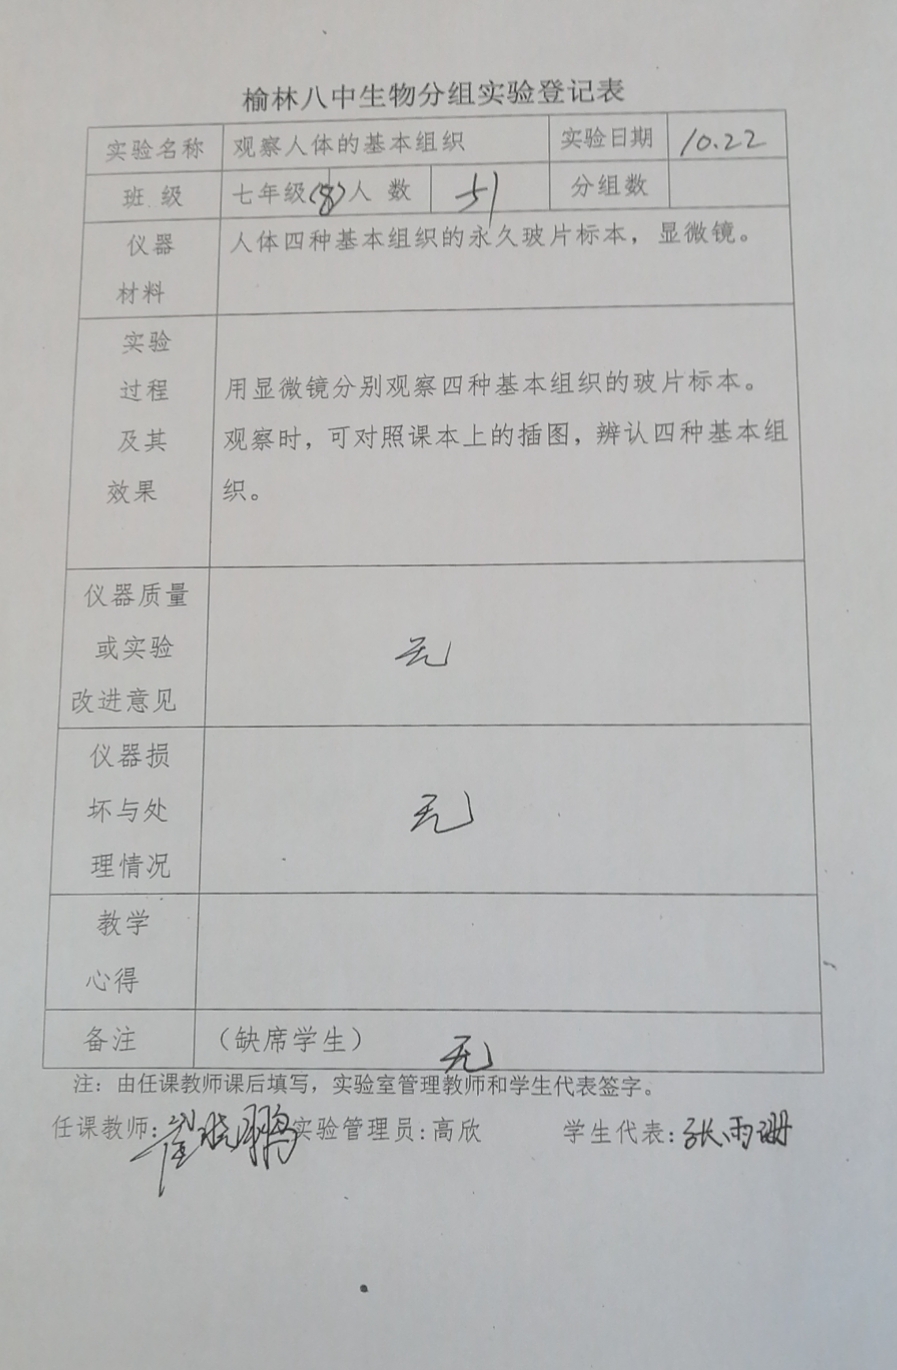 榆林八中生物分组实验登记表
实验名称 观察人体的基本组织 实验日期 10.22
班 级 七年级(8) 人 数 51 分组数
仪器 人体四种基本组织的永久玻片标本，显微镜。
材料
实验
过程 用显微镜分别观察四种基本组织的玻片标本。
及其 观察时，可对照课本上的插图，辨认四种基本组
效果 织。
仪器质量
或实验 无
改进意见
仪器损
坏与处 无
理情况
教学
心得
备注 （缺席学生） 无
注：由任课教师课后填写，实验室管理教师和学生代表签字。
任课教师：崔晓鹏 实验管理员：高欣 学生代表：张雨珊